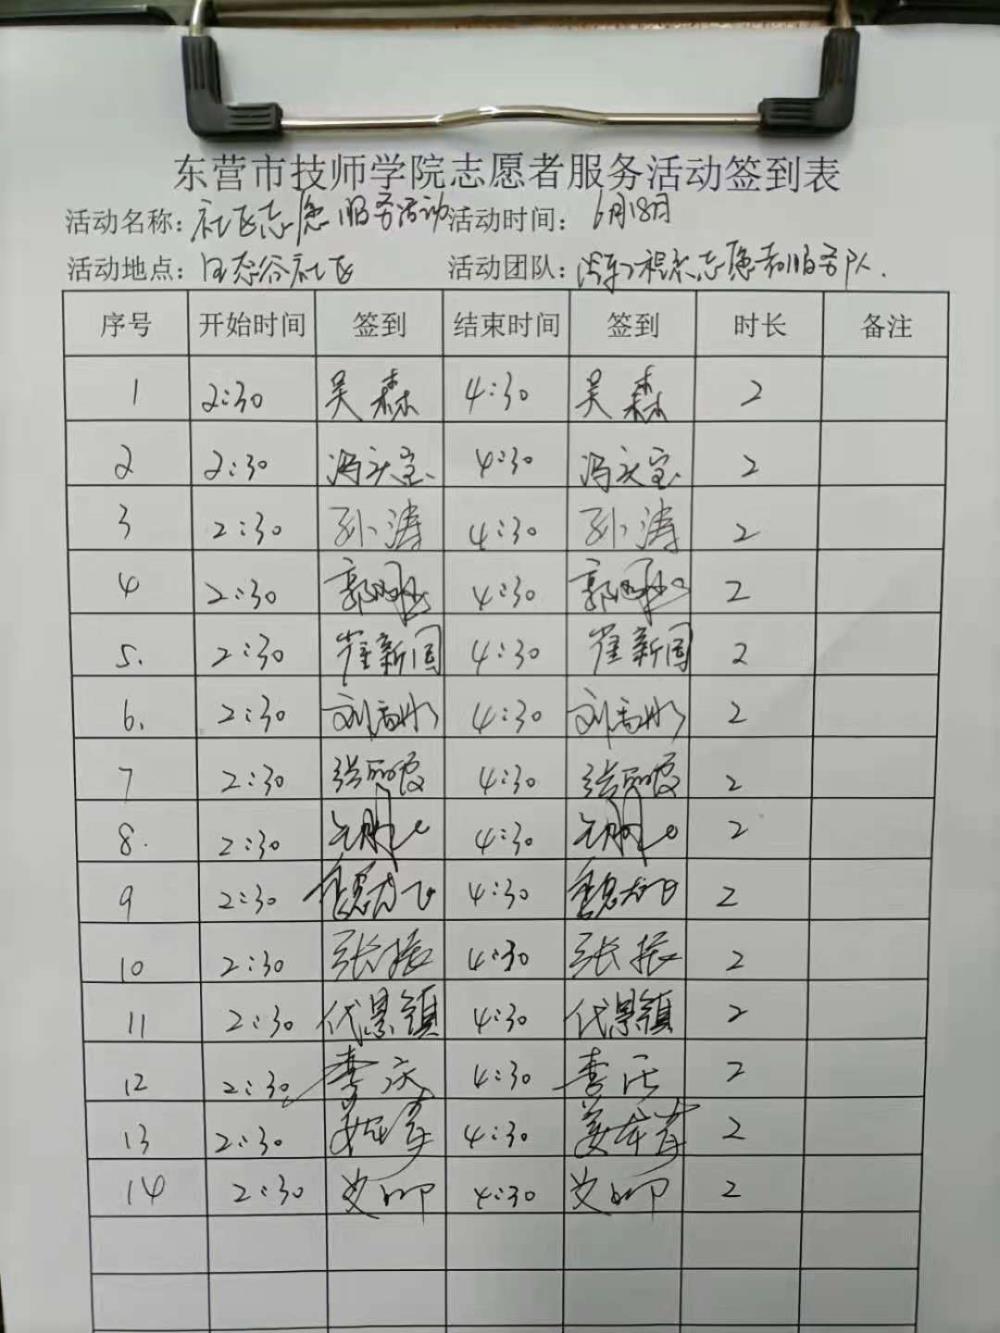 东营市技师学院志愿者服务活动签到表
活动名称: 社区志愿服务活动 活动时间: 6月18月
活动地点: 生态谷社区 活动团队: 汽车工程系志愿者服务队.
序号 开始时间 签到 结束时间 签到 时长 备注
1 2:30 吴森 4:30 吴森 2
2 2:30 冯天宝 4:30 冯天宝 2
3 2:30 孙涛 4:30 孙涛 2
4 2:30 郭 4:30 郭 2
5. 2:30 崔新国 4:30 崔新国 2
6. 2:30 刘 4:30 刘 2
7 2:30 张丽霞 4:30 张丽霞 2
8. 2:30 4:30 2
9 2:30 4:30 2
10 2:30 张振 4:30 张振 2
11 2:30 代恩镇 4:30 代恩镇 2
12 2:30 李庆 4:30 李 2
13 2:30 姜 4:30 姜 2
14 2:30 4:30 2